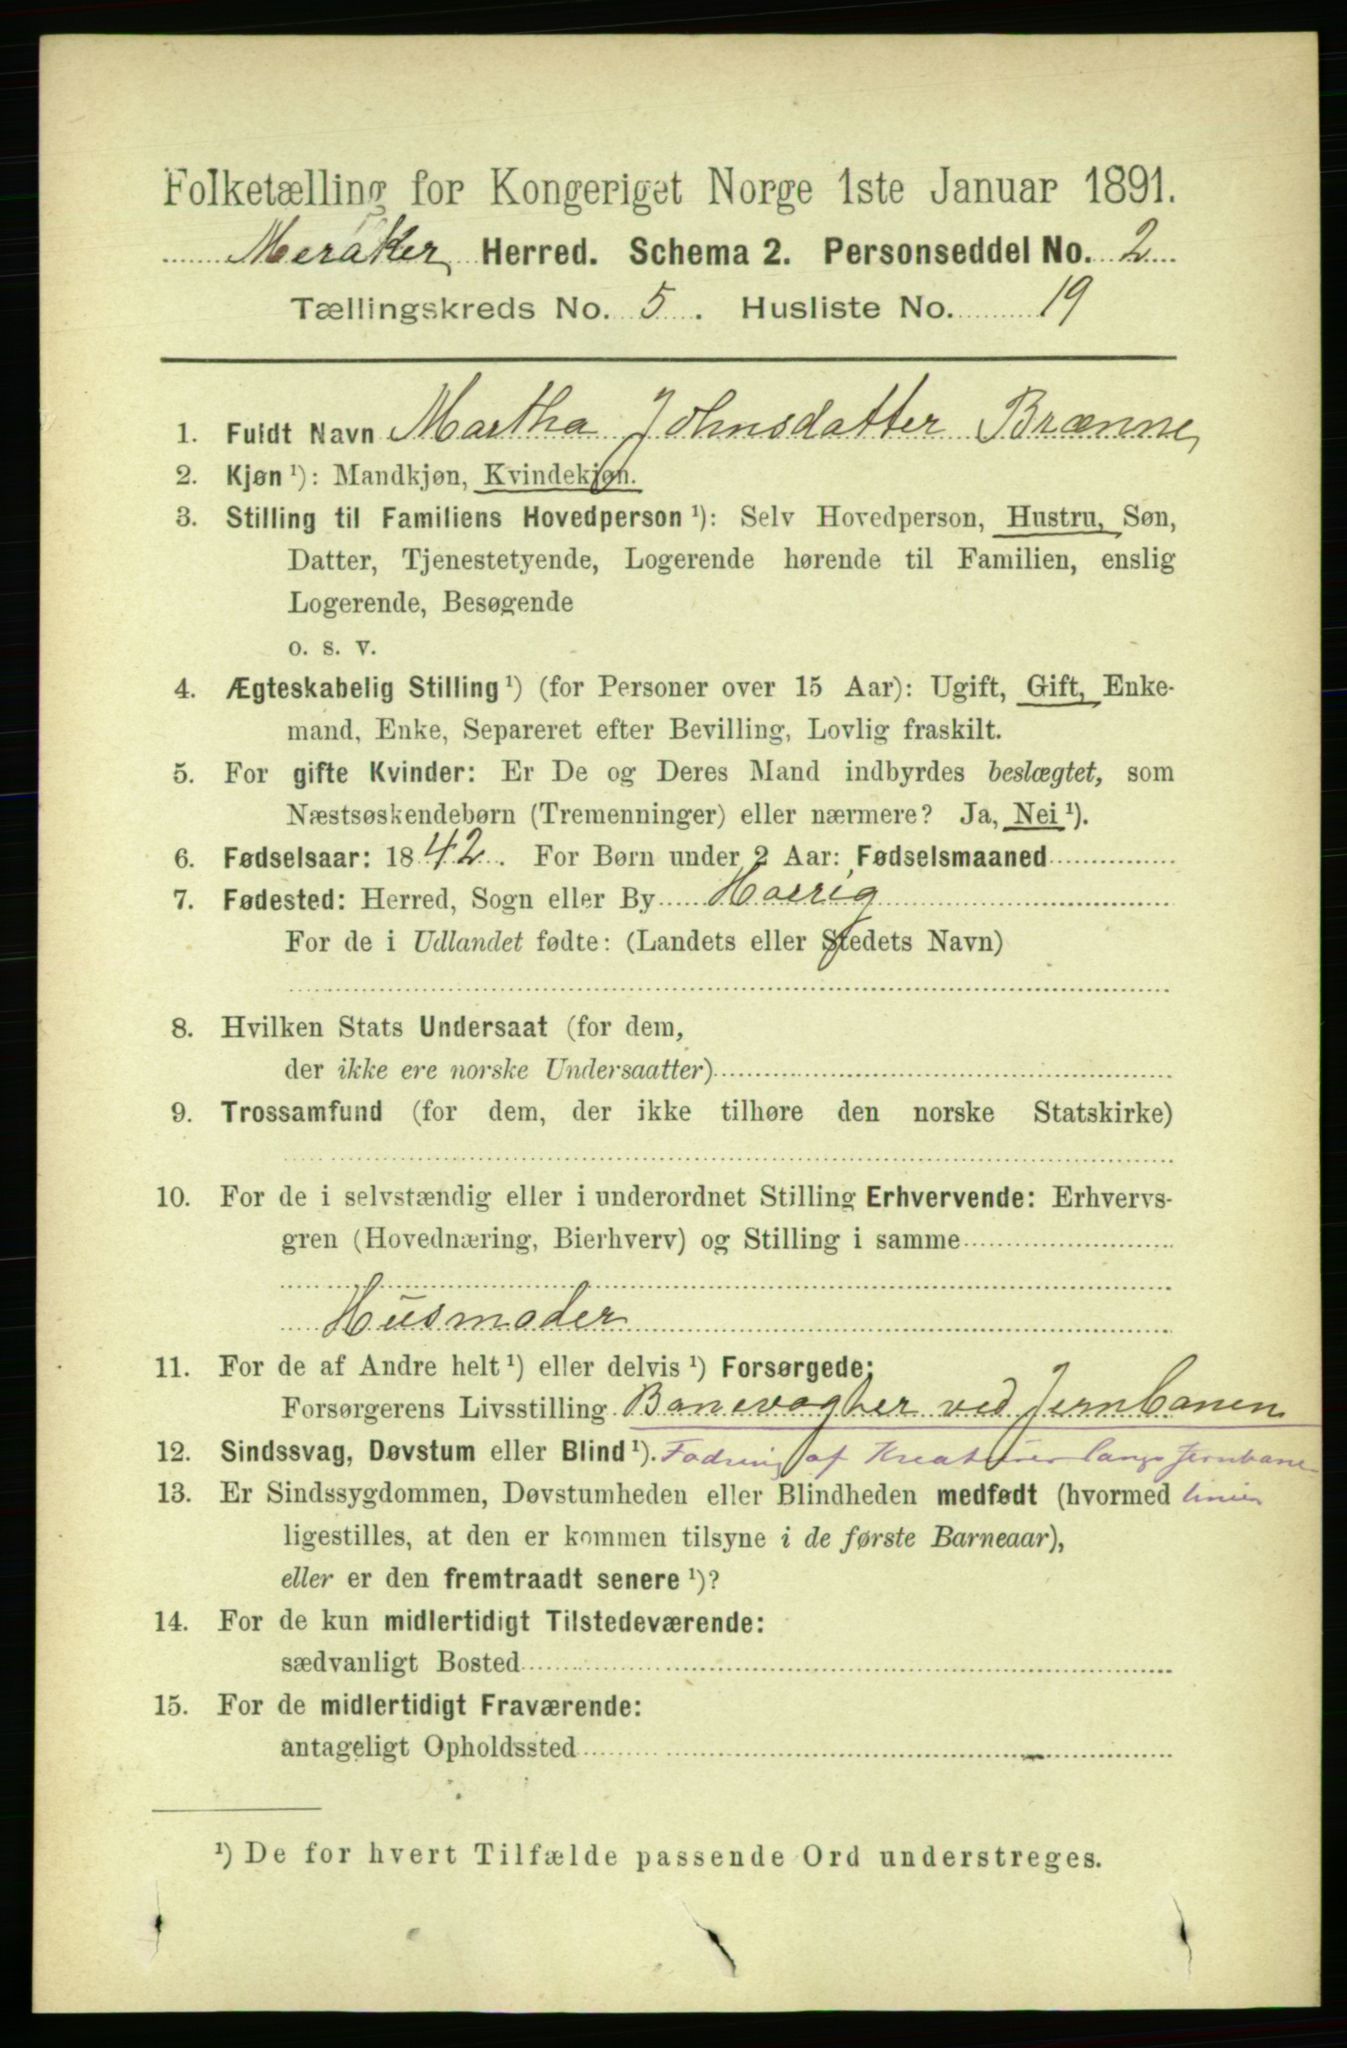 Folketælling for Kongeriget Norge 1ste Januar 1891.
Meråker Herred. Schema 2. Personseddel No. 2
Tællingskreds No. 5. Husliste No. 19
1. Fuldt Navn Martha Johnsdatter Brænne
2. Kjøn ¹): Mandkjøn, Kvindekjøn.
3. Stilling til Familiens Hovedperson ¹): Selv Hovedperson, Hustru, Søn,
Datter, Tjenestetyende, Logerende hørende til Familien, enslig
Logerende, Besøgende
o. s. v.
4. Ægteskabelig Stilling ¹) (for Personer over 15 Aar): Ugift, Gift, Enke-
mand, Enke, Separeret efter Bevilling, Lovlig fraskilt.
5. For gifte Kvinder: Er De og Deres Mand indbyrdes beslægtet, som
Næstsøskendebørn (Tremenninger) eller nærmere? Ja, Nei ¹).
6. Fødselsaar: 1842. For Børn under 2 Aar: Fødselsmaaned
7. Fødested: Herred, Sogn eller By
For de i Udlandet fødte: (Landets eller Stedets Navn)
8. Hvilken Stats Undersaat (for dem,
der ikke ere norske Undersaatter)
9. Trossamfund (for dem, der ikke tilhøre den norske Statskirke)
10. For de i selvstændig eller i underordnet Stilling Erhvervende: Erhvervs-
gren (Hovednæring, Bierhverv) og Stilling i samme
Husmoder
11. For de af Andre helt ¹) eller delvis ¹) Forsørgede:
Forsørgerens Livsstilling Banevogter ved Jernbanen
12. Sindssvag, Døvstum eller Blind ¹). af Kreaturer langs Jernbane-
13. Er Sindssygdommen, Døvstumheden eller Blindheden medfødt (hvormed linien
ligestilles, at den er kommen tilsyne i de første Barneaar),
eller er den fremtraadt senere ¹)?
14. For de kun midlertidigt Tilstedeværende:
sædvanligt Bosted
15. For de midlertidigt Fraværende:
antageligt Opholdssted
¹) De for hvert Tilfælde passende Ord understreges.